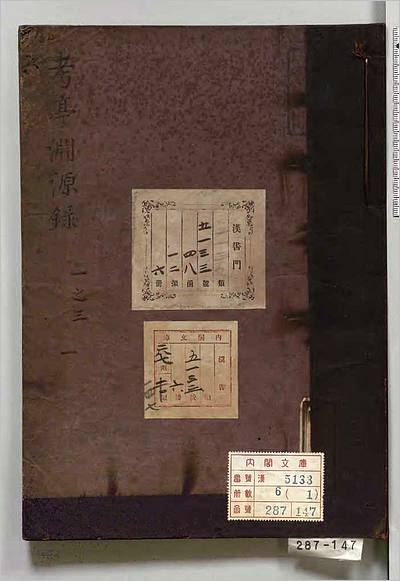 考亭淵源錄
一之三
一
漢書門
五一三三
四八
一二
六
類號函架冊
內閣文庫
漢書
五一三三
六
內閣文庫
番號 漢 5133
冊數 6 ( 1 )
函號 287 147
287-147